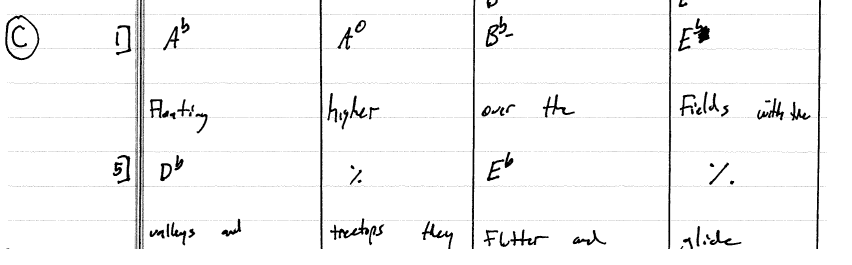 C 1] A♭ A° B♭- E♭
Floating higher over the Fields with the
5] D♭ % E♭ %
valleys and treetops they Flutter and glide